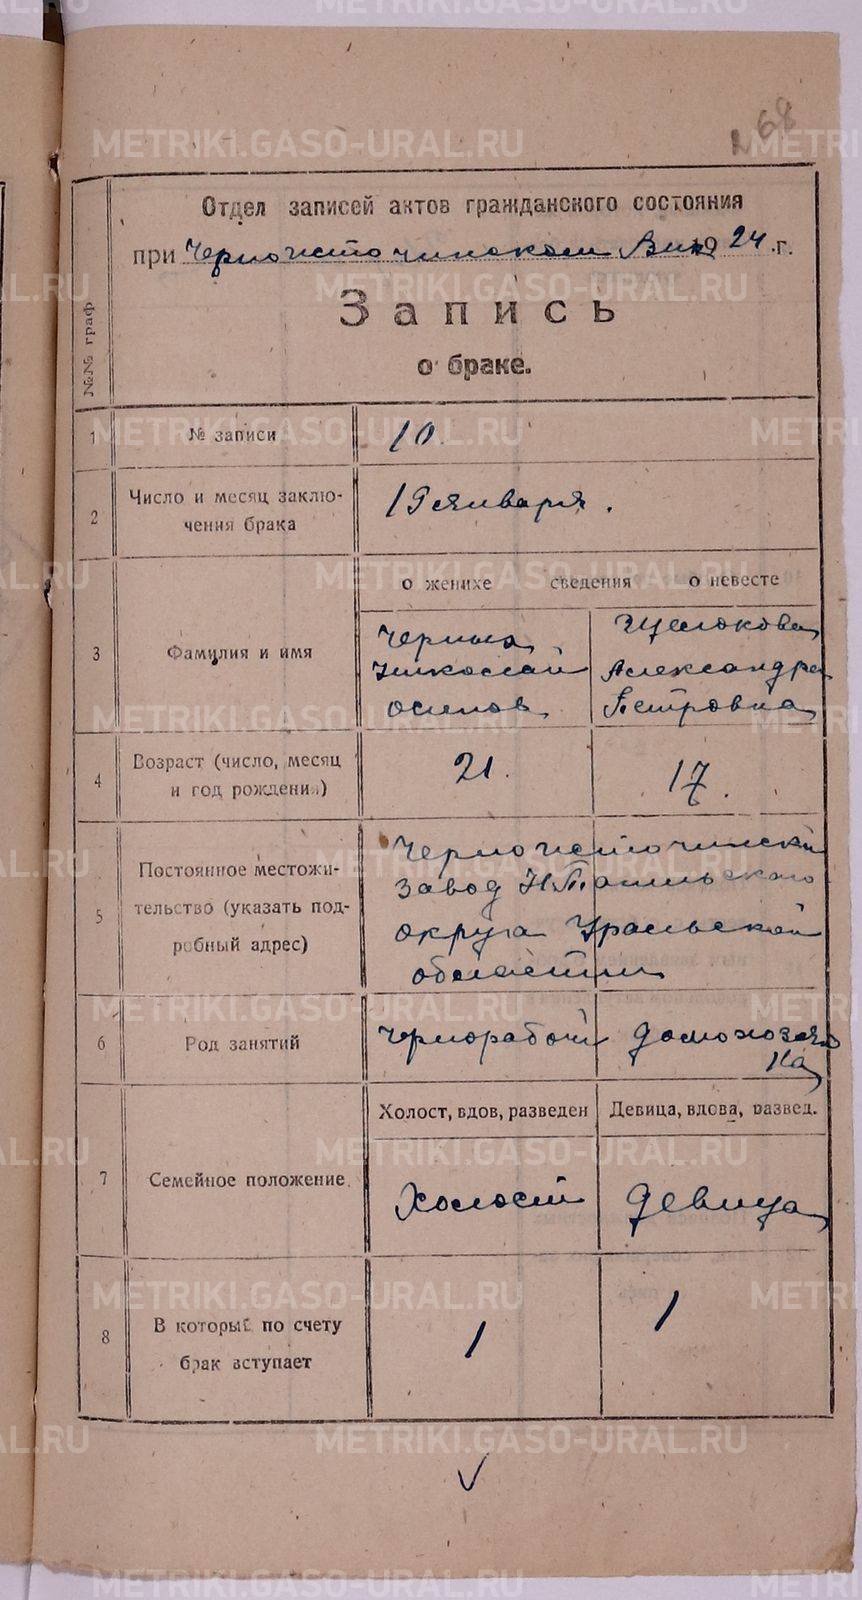 68
Отдел записей актов гражданского состояния
при Черноисточинском Вик 1924 г.
Запись
о браке.
№№ граф
1 № записи 10.
2 Число и месяц заклю-
чения брака
19 января.
о женихе сведения о невесте
3 Фамилия и имя
Черных
Николай
Осипов
Щелокова
Александра
Петровна
4 Возраст (число, месяц
и год рождения)
21.
17.
5 Постоянное местожи-
тельство (указать под-
робный адрес)
Черноисточинский
завод Н-Тагильского
округа Уральской
области
6 Род занятий
чернорабочий
домохозяй
ка
Холост, вдов, разведен Девица, вдова, развед.
7 Семейное положение.
Холост
Девица
8 В который по счету
брак вступает
1
1
METRIKI.GASO-URAL.RU